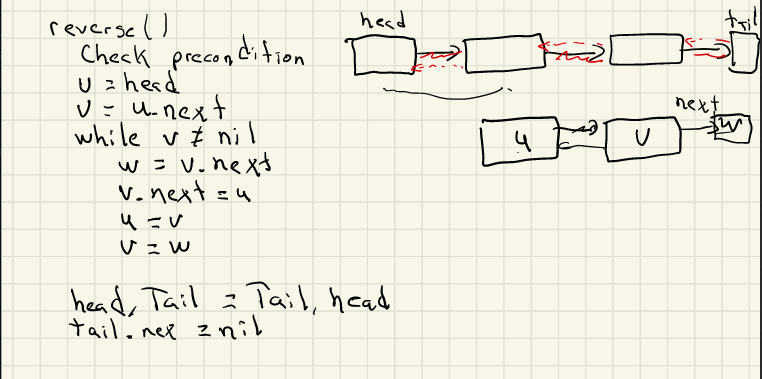 reverse()
Check precondition
u = head
v = u.next
while v ≠ nil
w = v.next
v.next = u
u = v
v = w
head, Tail = Tail, head
tail.nex = nil
head
tail
next
u
v
w